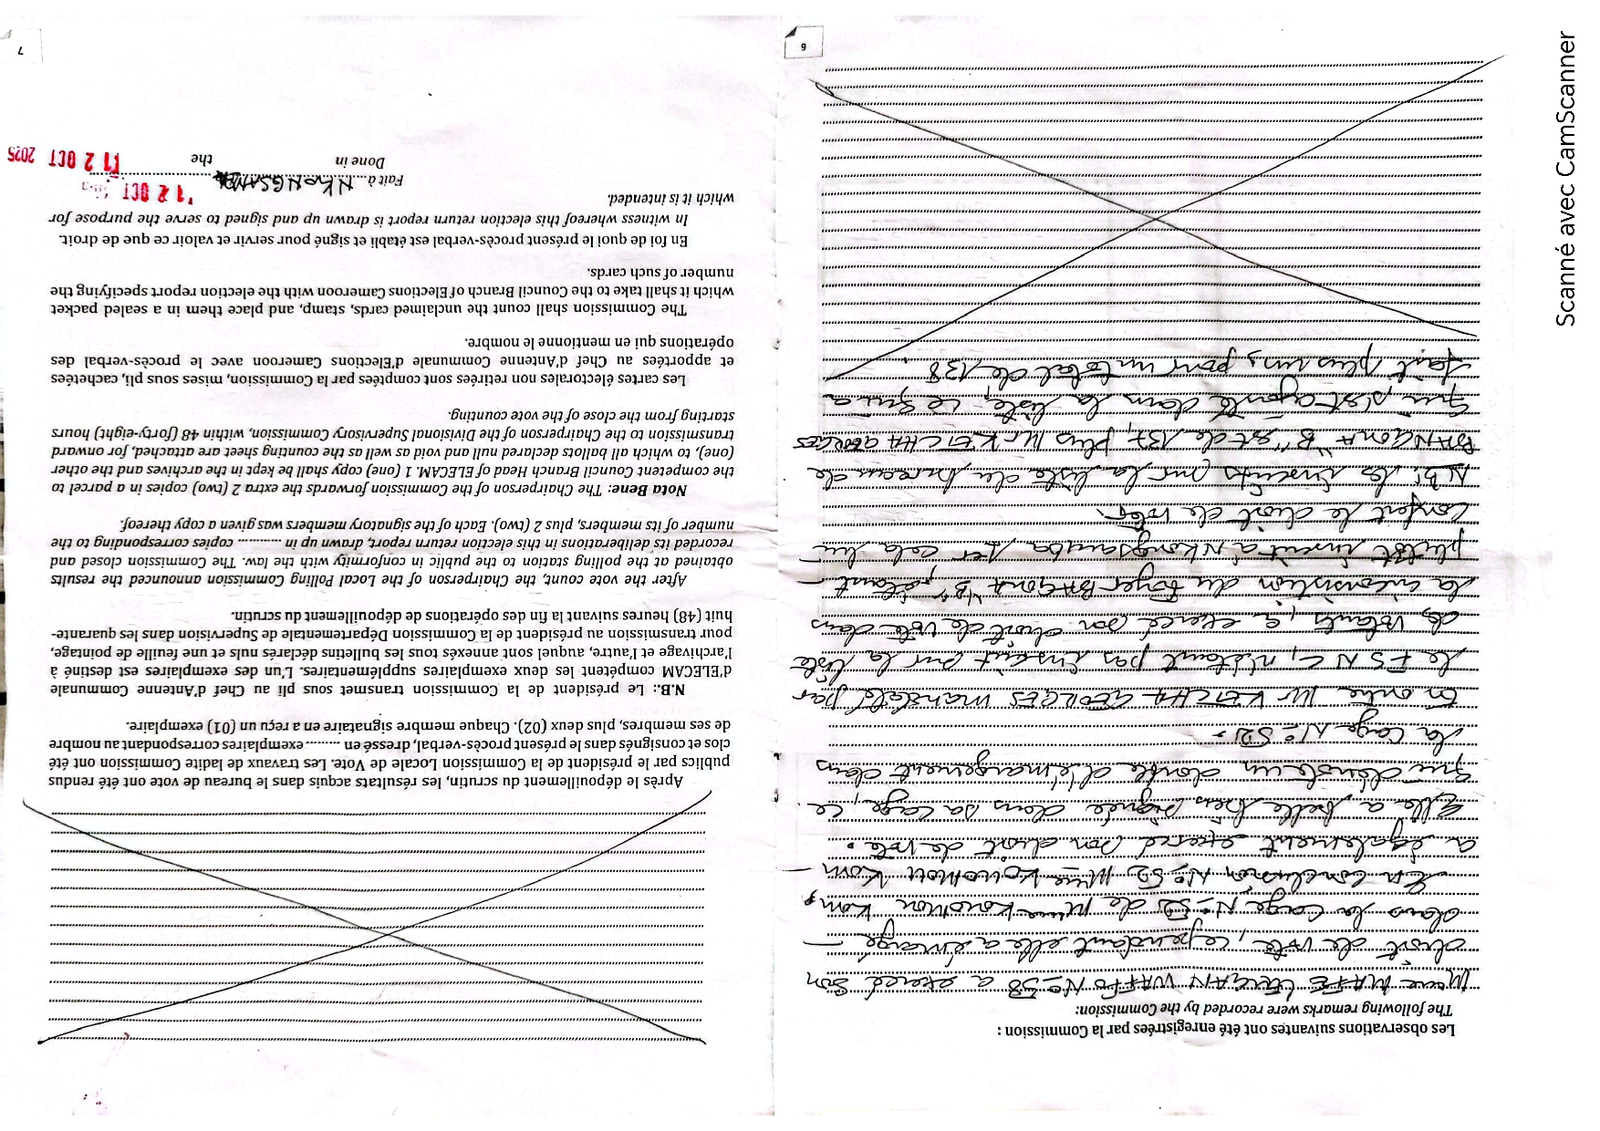 Les observations suivantes ont été enregistrées par la Commission :
The following remarks were recorded by the Commission:
Mme MAFFE WAFFO N° 58 a exercé son
droit de vote, cependant elle a émargé
dans la case N° 52 de Mme Kom,
En conclusion, N° 52 Mme KOUOMOU KOM
a également exercé son droit de vote.
Elle a, belle bien signée dans sa case, ce
que dénote un double d'émargement dans
la case N° 52.
En outre Mr KETCHA GEORGES mandaté par
le FSNC, n'étant pas inscrit sur la liste
des votants, a exercé son droit de vote dans
la du Foyer BAGONA "B", étant
plutôt inscrit à Nkongsamba 1er cela lui
confert le droit de voter.
NB: les inscrits sur la liste du bureau de
BANGONA "B" est de 137, plus Mr KETCHA GEORGES
qui s'est ajouté dans la liste, ce qui a
fait plus un, pour un total de 138.
6
Après le dépouillement du scrutin, les résultats acquis dans le bureau de vote ont été rendus
publics par le président de la Commission Locale de Vote. Les travaux de ladite Commission ont été
clos et consignés dans le présent procès-verbal, dressé en .......... exemplaires correspondant au nombre
de ses membres, plus deux (02). Chaque membre signataire en a reçu un (01) exemplaire.
N.B.: Le président de la Commission transmet sous pli au Chef d'Antenne Communale
d'ELECAM compétent les deux exemplaires supplémentaires. L'un des exemplaires est destiné à
l'archivage et l'autre, auquel sont annexés tous les bulletins déclarés nuls et une feuille de pointage,
pour transmission au président de la Commission Départementale de Supervision dans les quarante-
huit (48) heures suivant la fin des opérations de dépouillement du scrutin.
After the vote count, the Chairperson of the Local Polling Commission announced the results
obtained at the polling station to the public in conformity with the law. The Commission closed and
recorded its deliberations in this election return report, drawn up in .......... copies corresponding to the
number of its members, plus 2 (two). Each of the signatory members was given a copy thereof.
Nota Bene: The Chairperson of the Commission forwards the extra 2 (two) copies in a parcel to
the competent Council Branch Head of ELECAM. 1 (one) copy shall be kept in the archives and the other
(one), to which all ballots declared null and void as well as the counting sheet are attached, for onward
transmission to the Chairperson of the Divisional Supervisory Commission, within 48 (forty-eight) hours
starting from the close of the vote counting.
Les cartes électorales non retirées sont comptées par la Commission, mises sous pli, cachetées
et apportées au Chef d'Antenne Communale d'Elections Cameroon avec le procès-verbal des
opérations qui en mentionne le nombre.
The Commission shall count the unclaimed cards, stamp, and place them in a sealed packet
which it shall take to the Council Branch of Elections Cameroon with the election report specifying the
number of such cards.
En foi de quoi le présent procès-verbal est établi et signé pour servir et valoir ce que de droit.
In witness whereof this election return report is drawn up and signed to serve the purpose for
which it is intended.
Fait à NKONGSAMBA 12 OCT
Done in the 12 OCT 2025
7
Scanné avec CamScanner